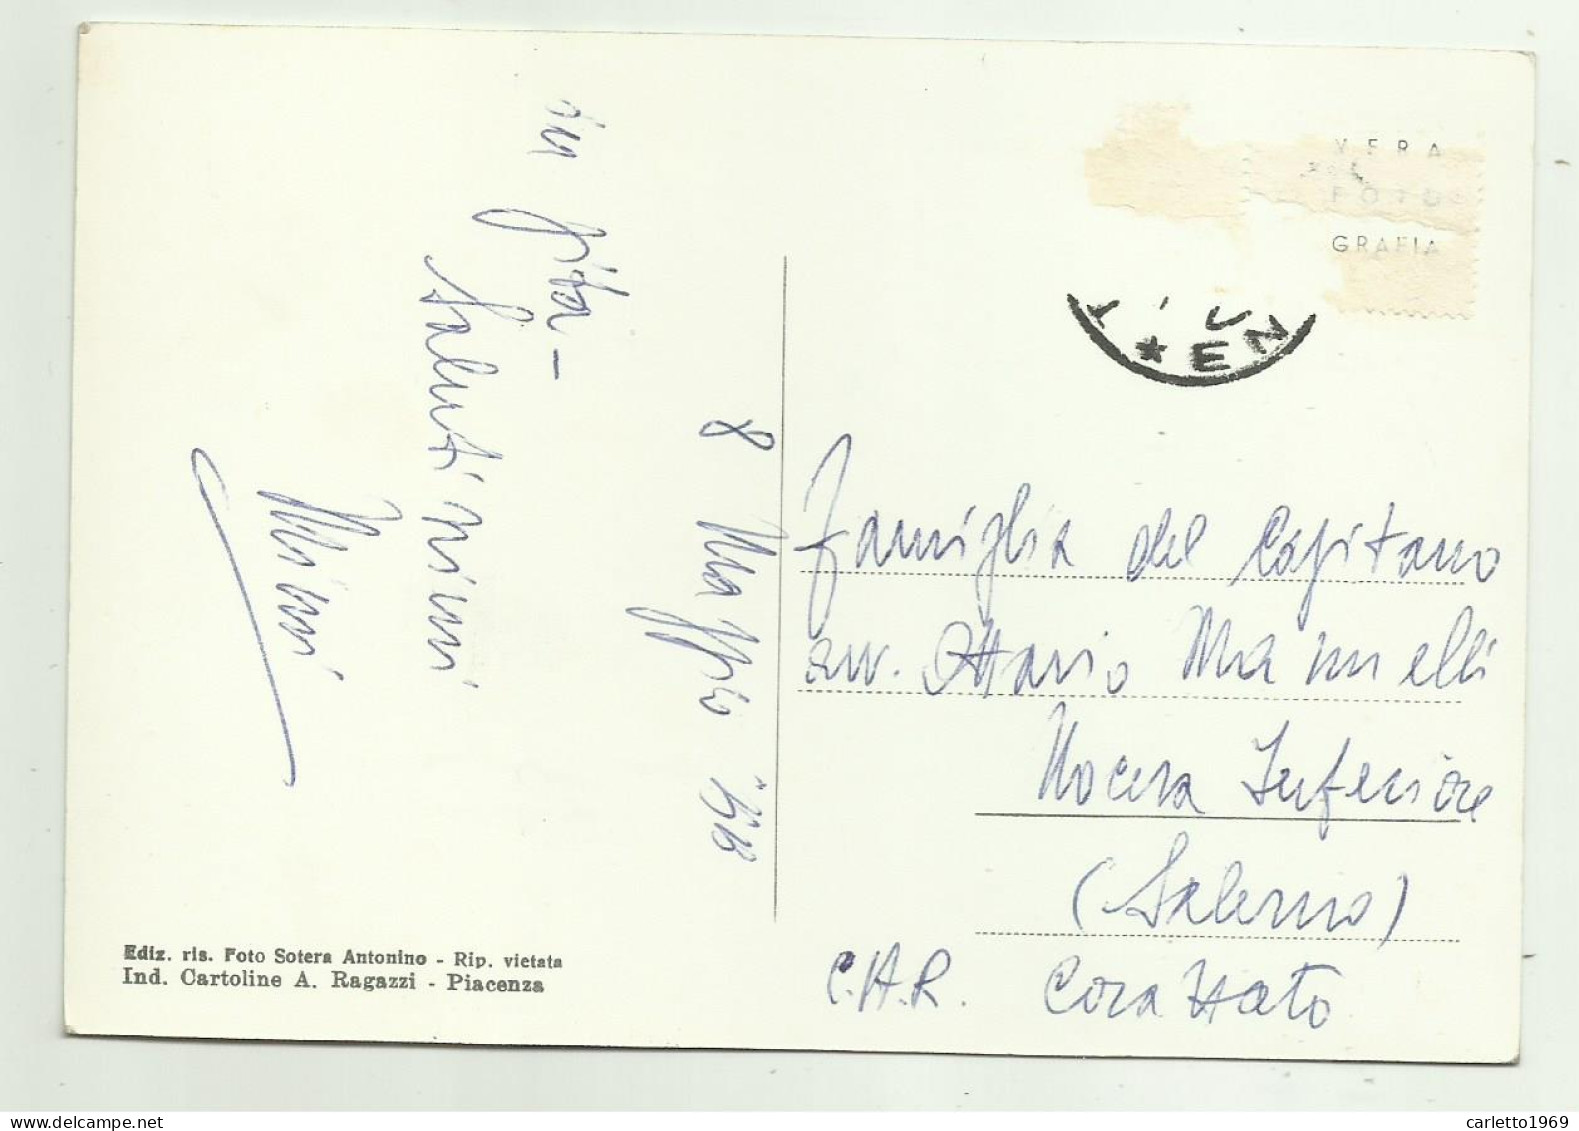 in gita -
Salutissimi
Mimì
8 Maggio '58
VERA
FOTO
GRAFIA
famiglia del Capitano
avv. Ottavio
Nocera Inferiore
(Salerno)
C.A.R.
Ediz. ris. Foto Sotera Antonino - Rip. vietata
Ind. Cartoline A. Ragazzi - Piacenza
carletto1969